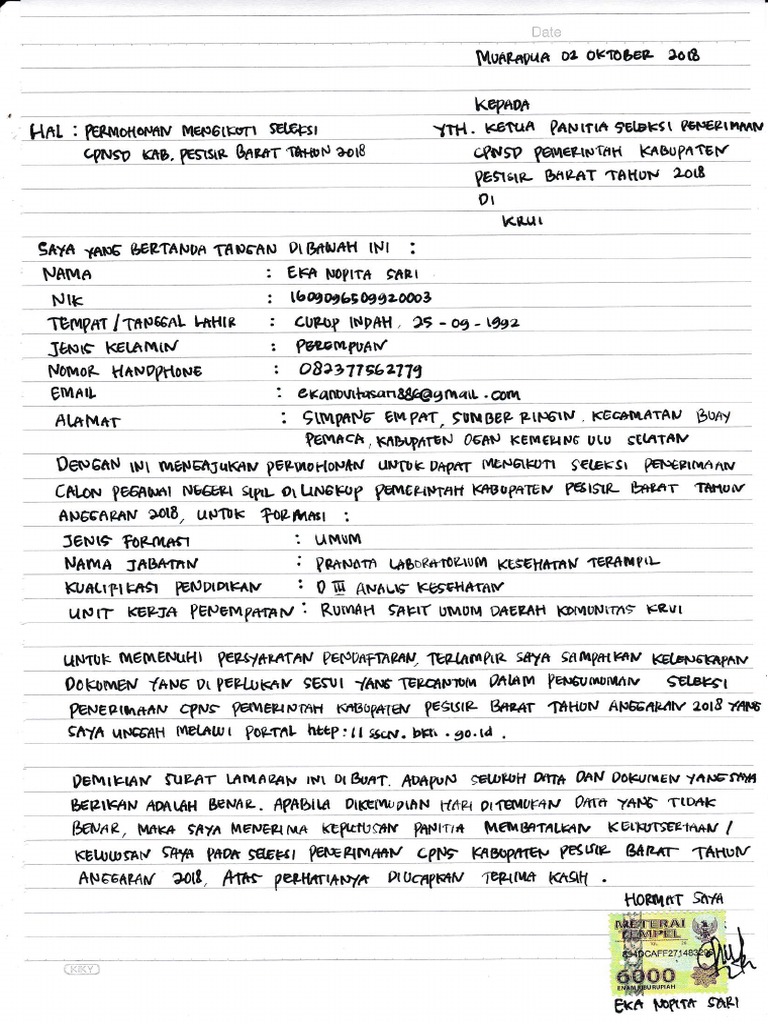 Date
MUARADUA 02 OKTOBER 2018
KEPADA
HAL : PERMOHONAN MENGIKUTI SELEKSI
YTH. KETUA PANITIA SELEKSI PENERIMAAN
CPNSD KAB. PESISIR BARAT TAHUN 2018
CPNSD PEMERINTAH KABUPATEN
PESISIR BARAT TAHUN 2018
DI
KRUI
SAYA YANG BERTANDA TANGAN DIBAWAH INI :
NAMA : EKA NOPITA SARI
NIK : 1609096509920003
TEMPAT / TANGGAL LAHIR : CURUP INDAH, 25 - 09 - 1992
JENIS KELAMIN : PEREMPUAN
NOMOR HANDPHONE : 082377562779
EMAIL : ekanovitasari886@gmail.com
ALAMAT : SIMPANG EMPAT, SUMBER RINGIN. KECAMATAN BUAY
PEMACA, KABUPATEN OGAN KEMERING ULU SELATAN
DENGAN INI MENGAJUKAN PERMOHONAN UNTUK DAPAT MENGIKUTI SELEKSI PENERIMAAN
CALON PEGAWAI NEGERI SIPIL DI LINGKUP PEMERINTAH KABUPATEN PESISIR BARAT TAHUN
ANGGARAN 2018, UNTUK FORMASI :
JENIS FORMASI : UMUM
NAMA JABATAN : PRANATA LABORATORIUM KESEHATAN TERAMPIL
KUALIFIKASI PENDIDIKAN : D III ANALIS KESEHATAN
UNIT KERJA PENEMPATAN : RUMAH SAKIT UMUM DAERAH KOMUNITAS KRUI
UNTUK MEMENUHI PERSYARATAN PENDAFTARAN, TERLAMPIR SAYA SAMPAIKAN KELENGKAPAN
DOKUMEN YANG DI PERLUKAN SESUI YANG TERCANTUM DALAM PENGUMUMAN SELEKSI
PENERIMAAN CPNS PEMERINTAH KABUPATEN PESISIR BARAT TAHUN ANGGARAN 2018 YANG
SAYA UNGGAH MELALUI PORTAL http://sscn.bkn.go.id.
DEMIKIAN SURAT LAMARAN INI DIBUAT. ADAPUN SELURUH DATA DAN DOKUMEN YANG SAYA
BERIKAN ADALAH BENAR. APABILA DIKEMUDIAN HARI DITEMUKAN DATA YANG TIDAK
BENAR, MAKA SAYA MENERIMA KEPUTUSAN PANITIA MEMBATALKAN KEIKUTSERTAAN /
KELULUSAN SAYA PADA SELEKSI PENERIMAAN CPNS KABUPATEN PESISIR BARAT TAHUN
ANGGARAN 2018, ATAS PERHATIANYA DIUCAPKAN TERIMA KASIH.
HORMAT SAYA
METERAI
TEMPEL
6000
ENAM RIBU RUPIAH
EKA NOPITA SARI
KIKY